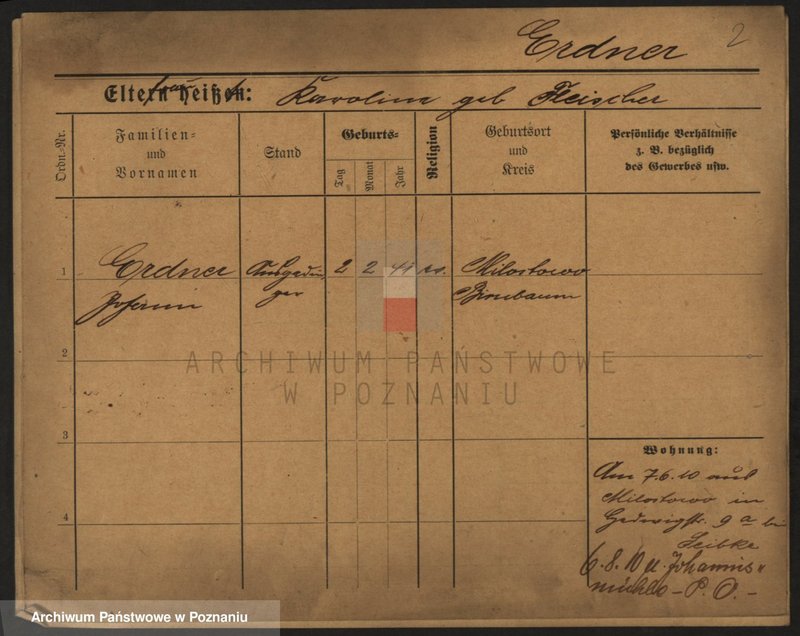 Erdner 2
Eltern heißen: Karolina geb Fleischer
Ordn.-Nr.
Familien-
und
Vornamen
Stand
Geburts-
Tag
Monat
Jahr
Religion
Geburtsort
und
Kreis
Persönliche Verhältnisse
z. B. bezüglich
des Gewerbes usw.
1 Erdner Ausgedin- 2 2 41 Milostowo
Johann ger Birnbaum
2
ARCHIWUM PAŃSTWOWE
W POZNANIU
3
Wohnung:
Am 7.6.10 aus
Milostowo in
4
Hedwigstr. 9a bei
Leibke
6.8.10 u. Johannis
mühle - P. O. -
Archiwum Państwowe w Poznaniu